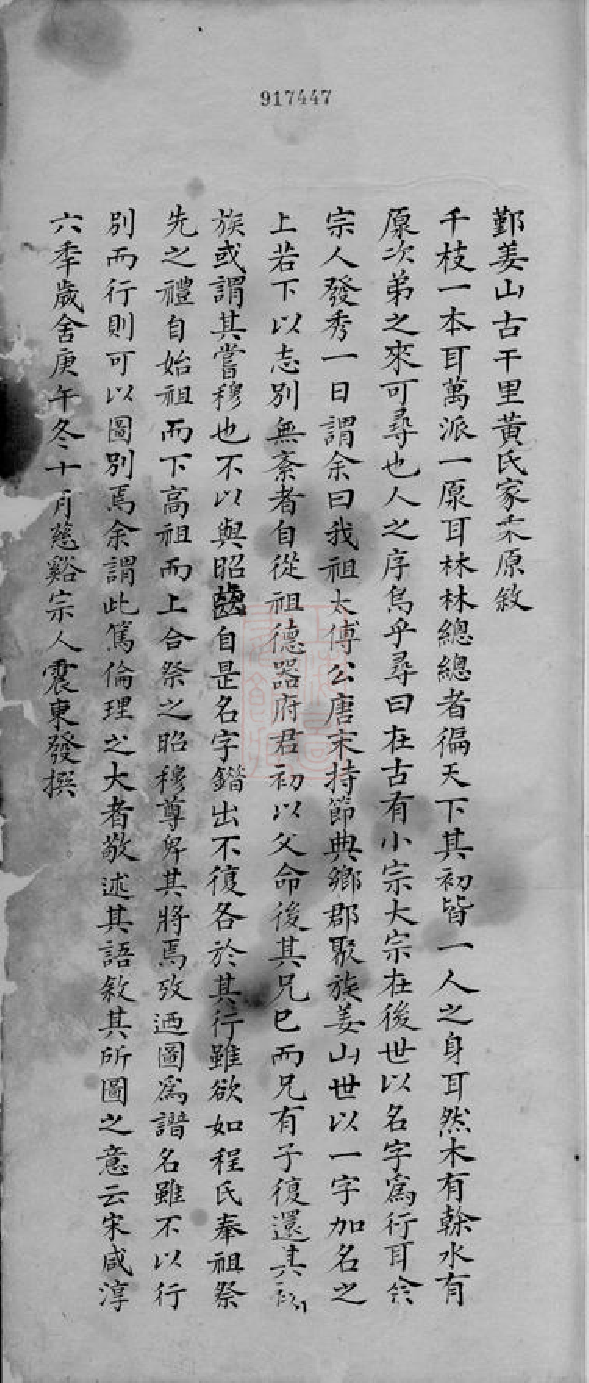 917447
鄞姜山古千里黃氏家乘原敘
千枝一本耳萬派一原耳林林總總者徧天下其初皆一人之身耳然木有榦水有
原次第之來可尋也人之序烏乎尋曰在古有小宗大宗在後世以名字爲行耳
宗人發秀一日謂余曰我祖太傅公唐末持節典鄉郡聚族姜山世以一字加名之
上若下以志別無紊者自從祖德器府君初以父命後其兄巳而兄有子復還其初
族或謂其嘗穆也不以與昭齒自是名字錯出不復各於其行雖欲如程氏奉祖祭
先之禮自始祖而下高祖而上合祭之昭穆尊卑其將焉攷迺圖爲譜名雖不以行
別而行則可以圖別焉余謂此篤倫理之大者敬述其語敘其所圖之意云宋咸淳
六季歲舍庚午冬十月慈谿宗人震東發撰